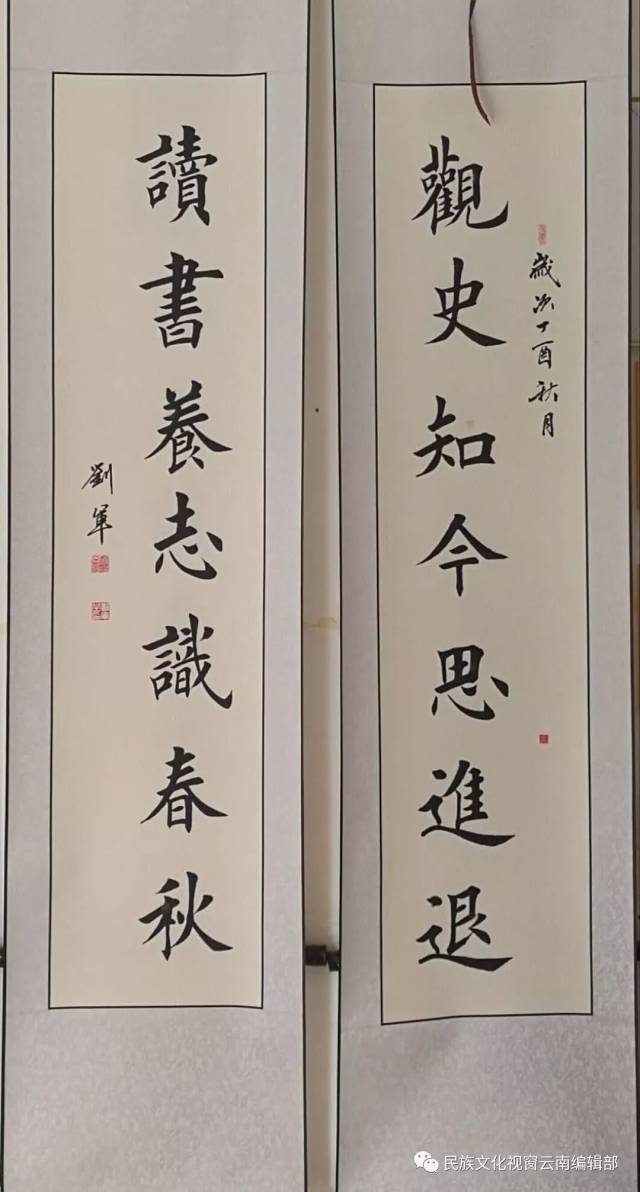 歲次丁酉秋月
觀史知今思進退
讀書養志識春秋
劉軍
民族文化视窗云南编辑部